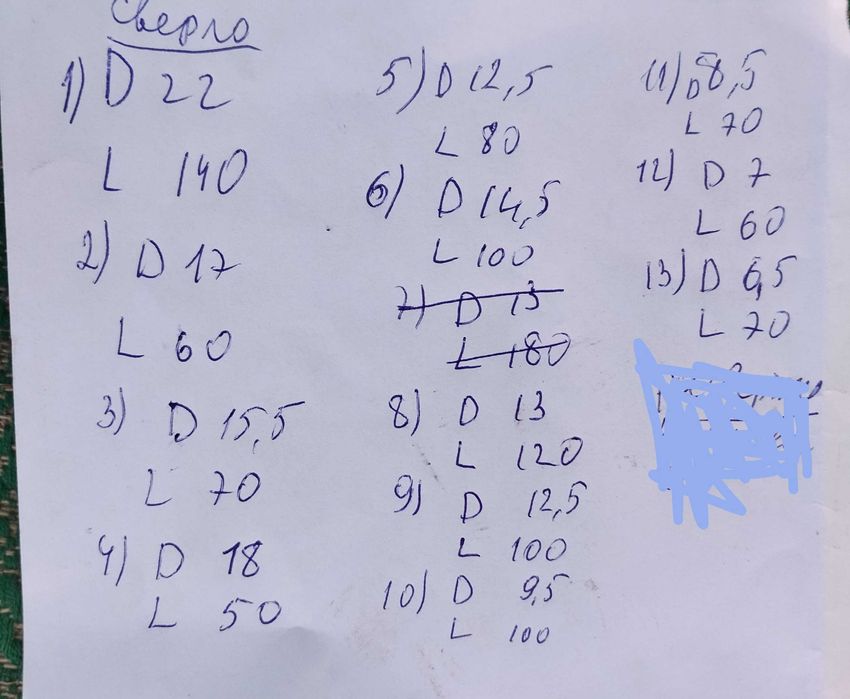 Сверло
1) D 22
L 140
2) D 17
L 60
3) D 15,5
L 70
4) D 18
L 50
5) D 12,5
L 80
6) D 14,5
L 100
7) D 13
L 180
8) D 13
L 120
9) D 12,5
L 100
10) D 9,5
L 100
11) D 8,5
L 70
12) D 7
L 60
13) D 6,5
L 70